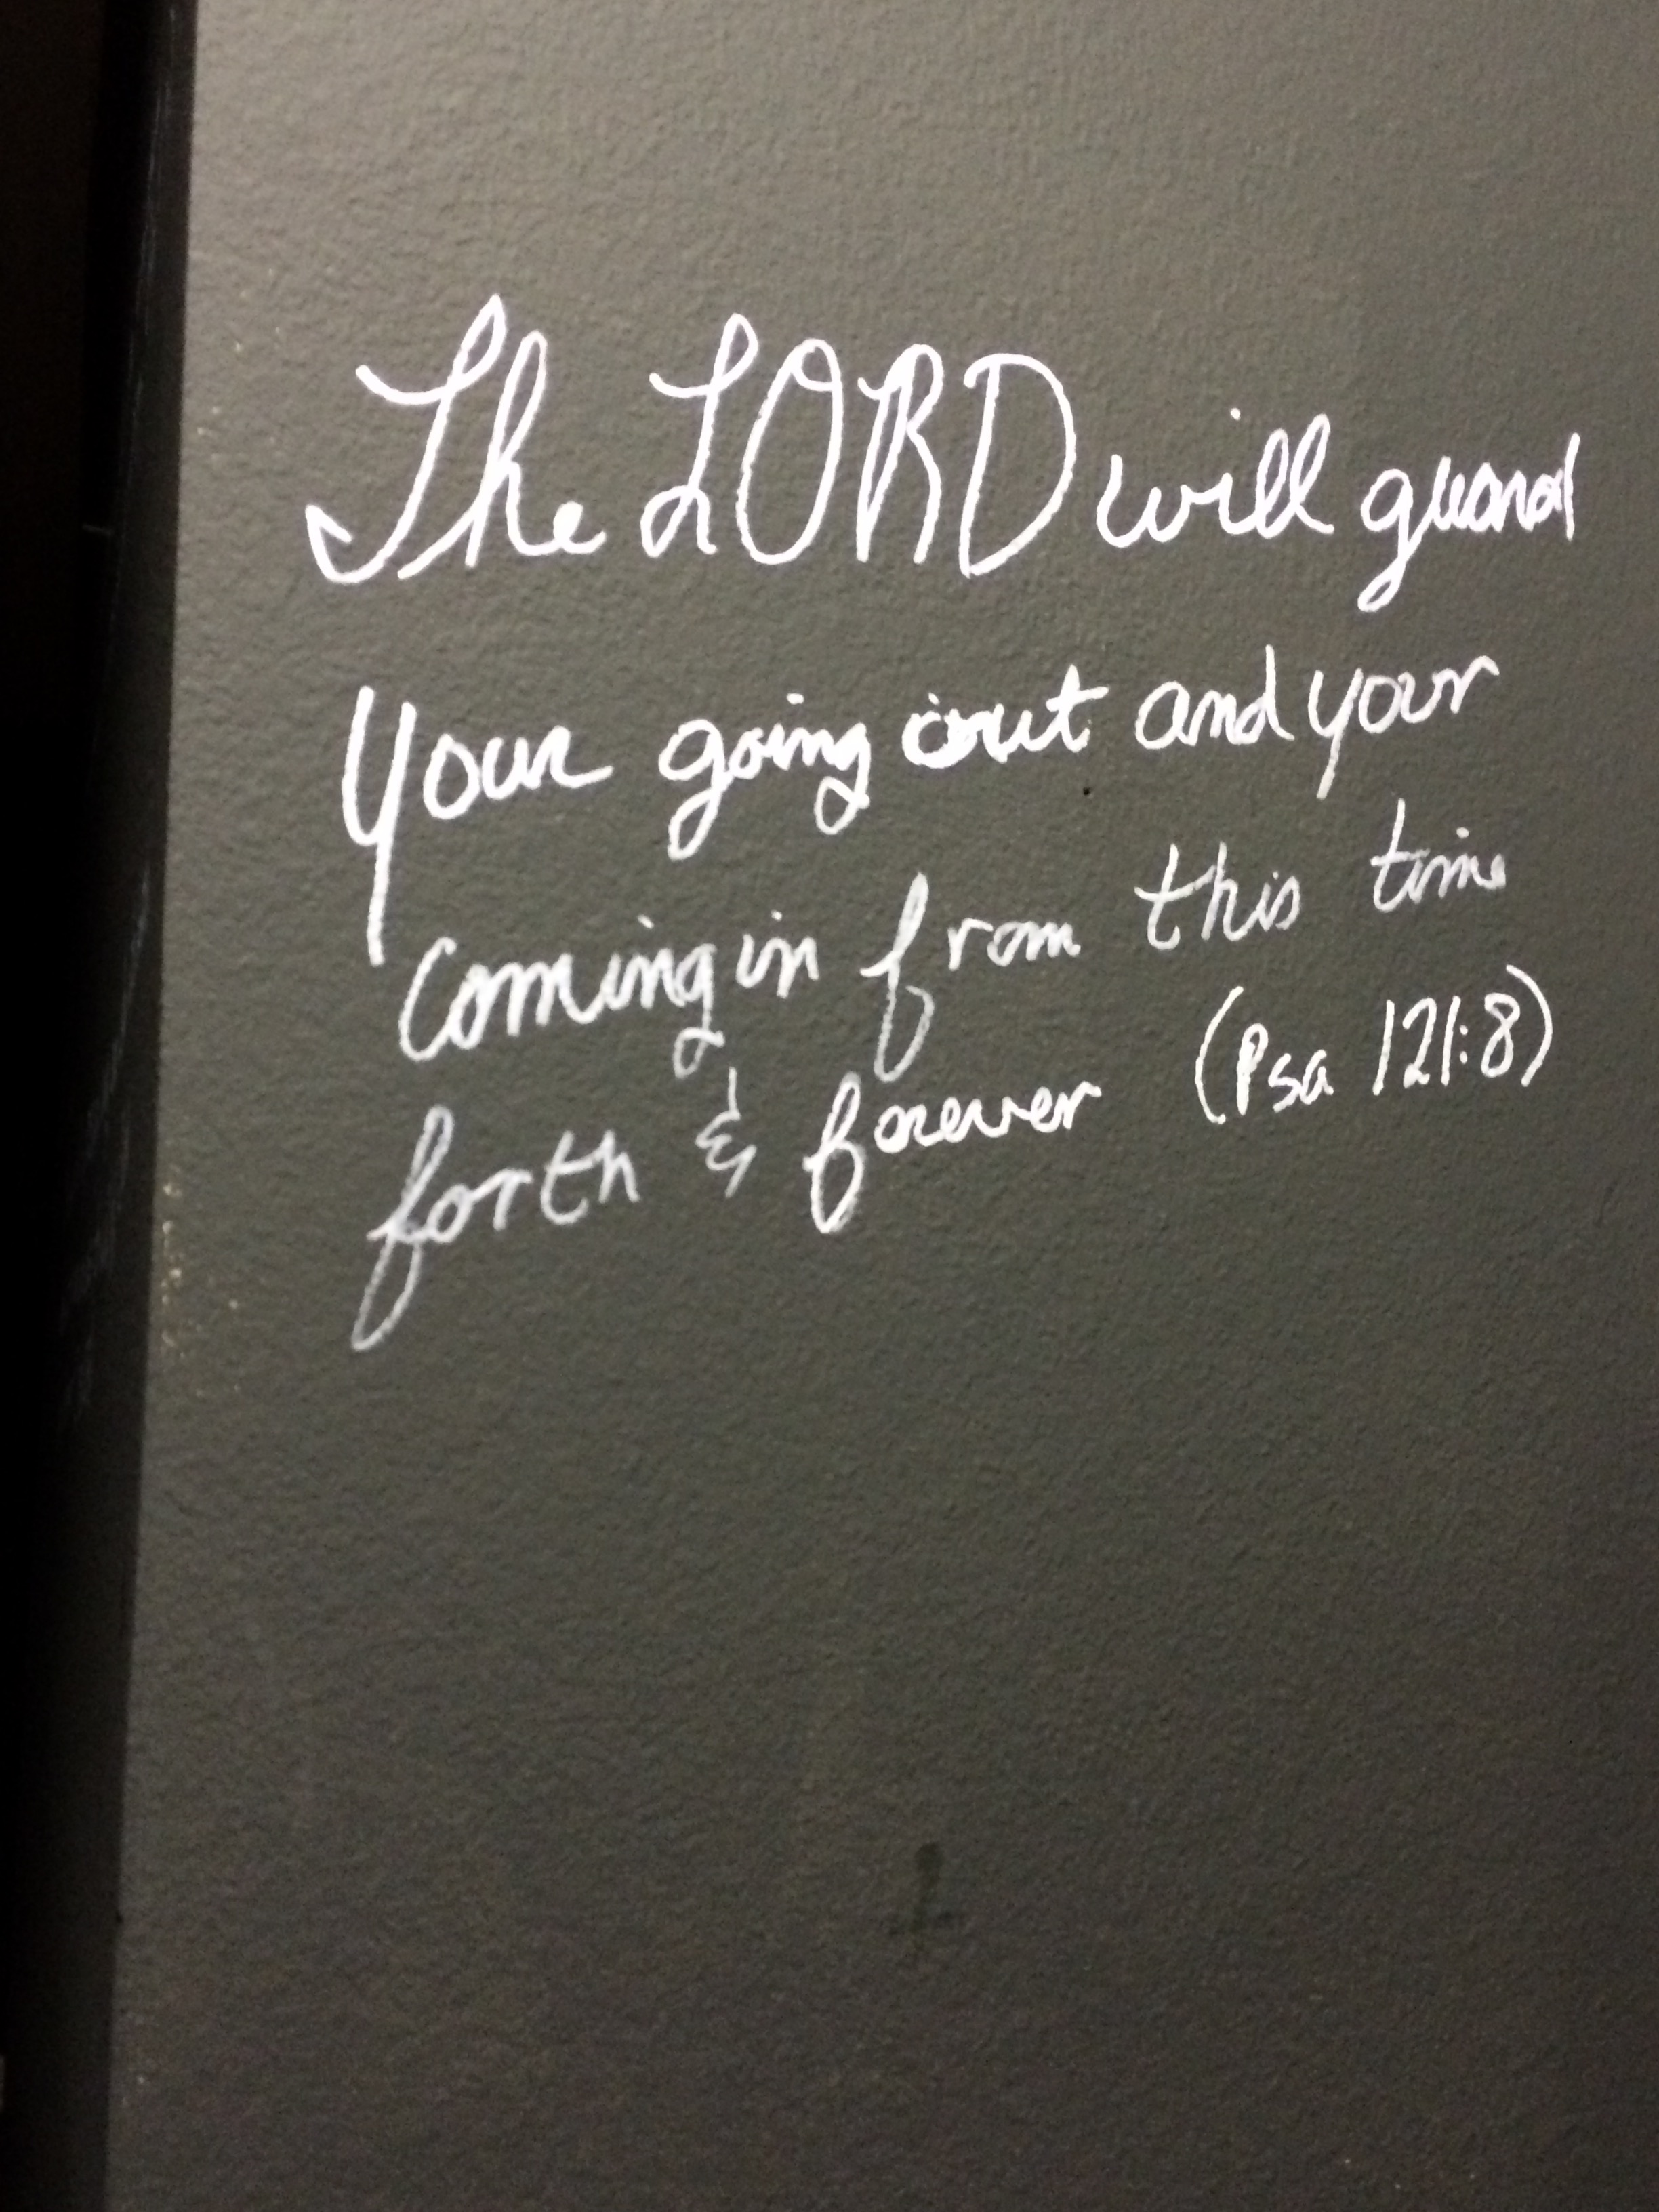 The LORD will guard
Your going out and your
coming in from this time
forth & forever (Psa 121:8)